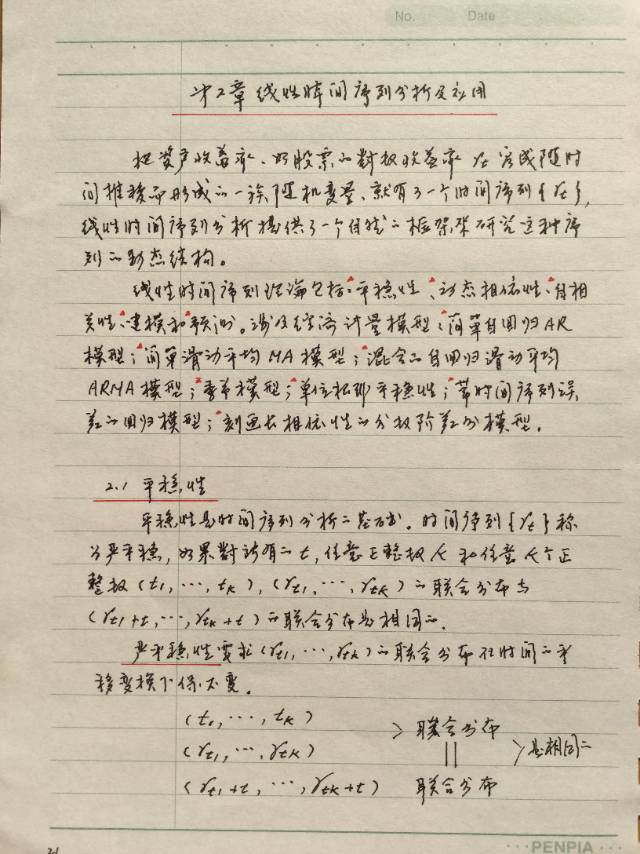 No.  Date
第2章 线性时间序列分析及应用
把资产收益率、如股票的对数收益率在完成随时
间推移而形成的一族随机变量、就有了一个时间序列{rt},
线性时间序列分析提供了一个自然的框架来研究这种序
列的动态结构。
线性时间序列理论包括:平稳性、动态相依性、自相
关性、建模和预测。涉及经济计量模型:简单自回归AR
模型;简单滑动平均MA模型;混合的自回归滑动平均
ARMA模型;季节模型;单位根非平稳性;带时间序列误
差的回归模型;刻画长相依性的分数阶差分模型。
2.1 平稳性
平稳性是时间序列分析的基础。时间序列{rt}称
为严平稳,如果對所有的t,任意正整数k和任意k个正
整数(t1,…,tk),(rt1,…,rtk)的联合分布与
(rt1+t,…,rtk+t)的联合分布是相同的.
严平稳性要求(rt1,…,rtk)的联合分布在时间的平
移变换下保持不变。
(t1,…,tk)
> 联合分布
(rt1,…,rtk)
|| > 是相同的
(rt1+t,…,rtk+t) 联合分布
31
···PENPIA···